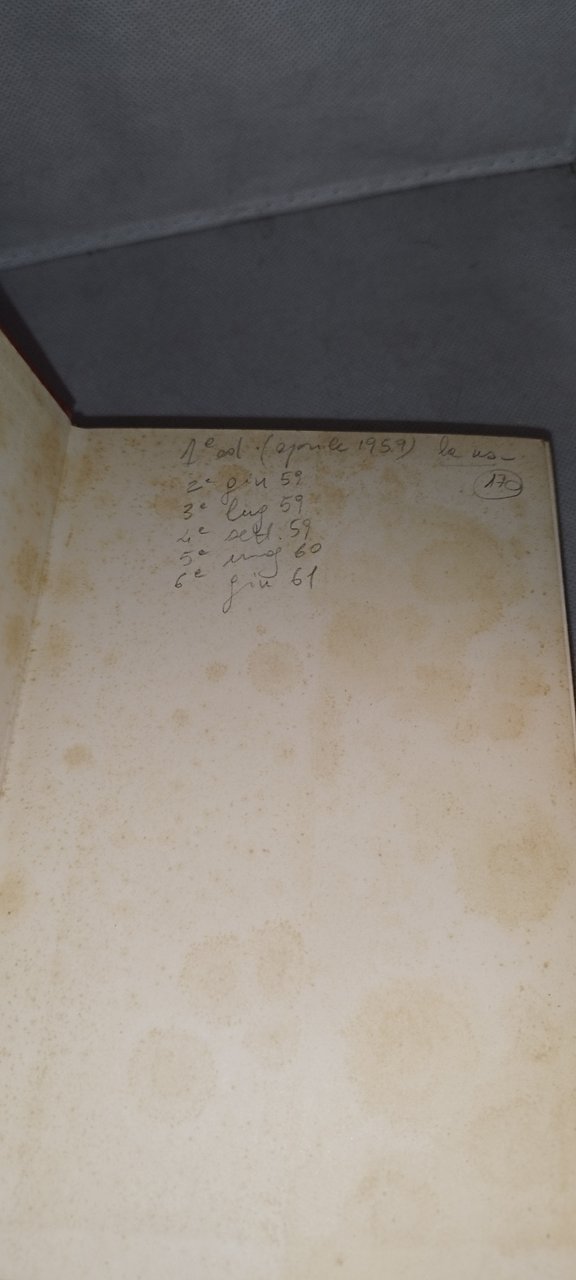 1ª ed. (aprile 1959)
170
2ª giu 59
3ª lug 59
4ª sett. 59
5ª mag 60
6ª giu 61